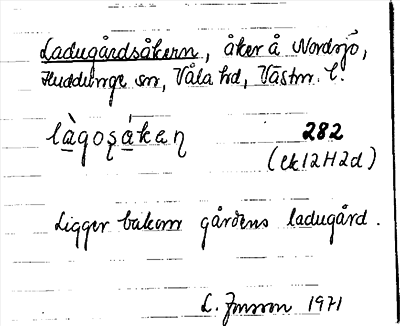 Ladugårdsåkern, åker å Nordsjö,
Huddunge sn, Våla hd, Västm. l.
là̱gosá̱kaɳ 282
(ek 12H2d)
Ligger bakom gårdens ladugård.
L. Jonsson 1971